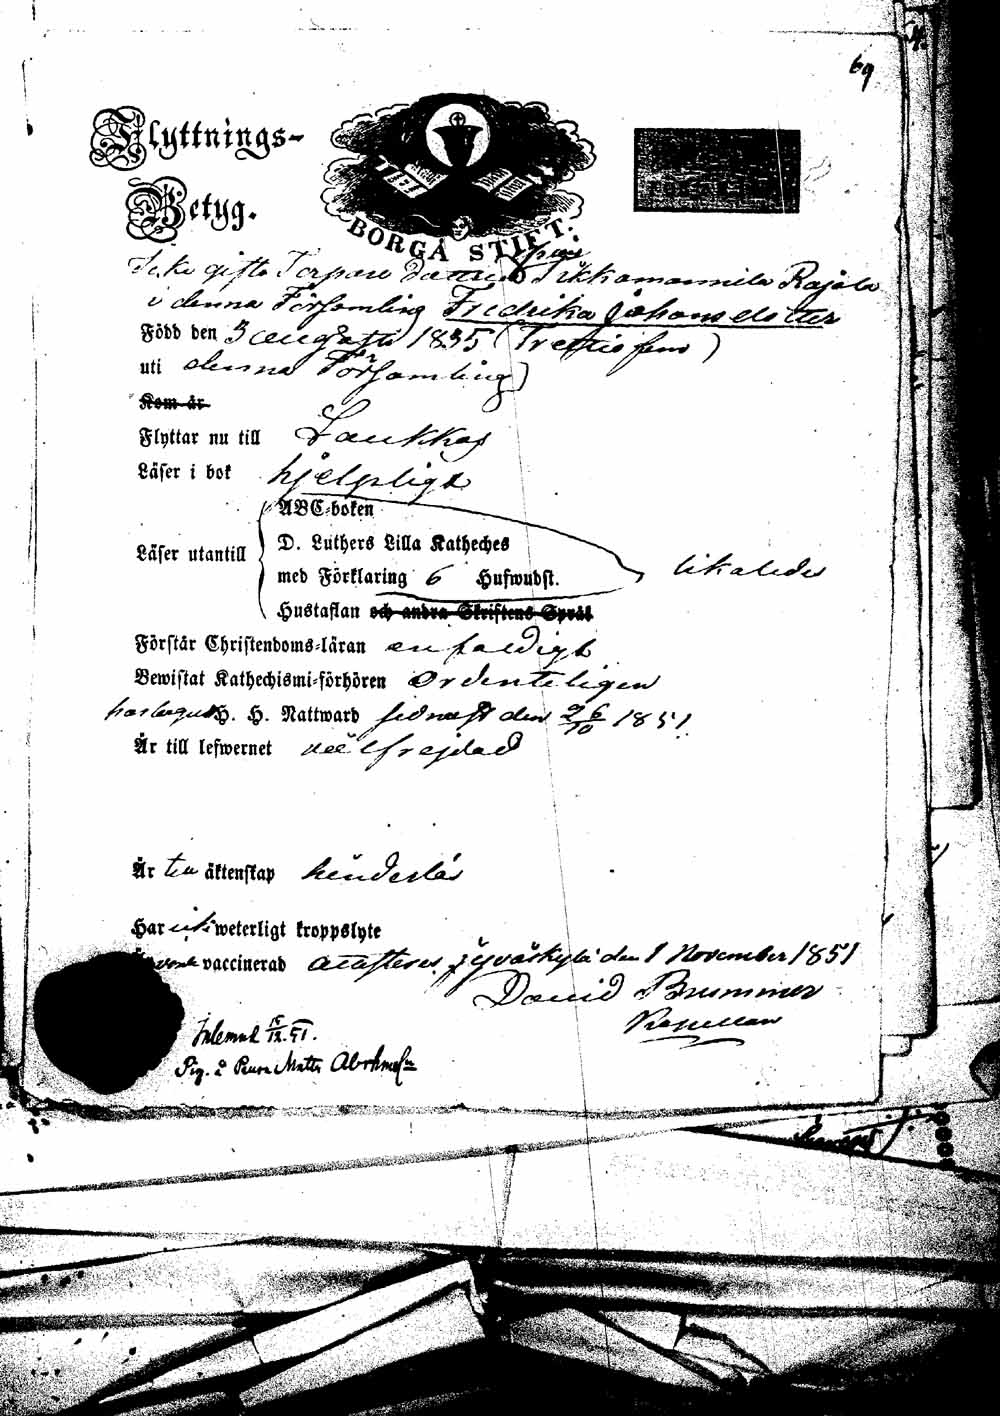 69
Flyttnings-
Betyg.
BORGÅ STIFT.
på
Icke gifta Torpare Dottren Sikkamannila Rajala
i denna Församling Fredrika Johansdotter
Född den 3 augusti 1835 (Trettiofem)
uti denna Församling)
Kom år
Flyttar nu till Laukkas
Läser i bok hjelpligt
ABC-boken
Läser utantill D. Luthers Lilla Katheches
med Förklaring 6 Hufwudst. likaledes
Hustaflan och andra Skriftens Språk
Förstår Christendoms-läran enfaldigt
Bewistat Kathechismi-förhören ordenteligen
har begått H. H. Nattward sednast den 26/10 1851.
Är till lefwernet väl frejdad
Är till äktenskap hinderlös
Har ick weterligt kroppslyte
vaccinerad attesteras, Jyväskylä den 1 November 1851
David Brummer
Kapellan
Inlemnad 15/12 51.
Pig. å Matts